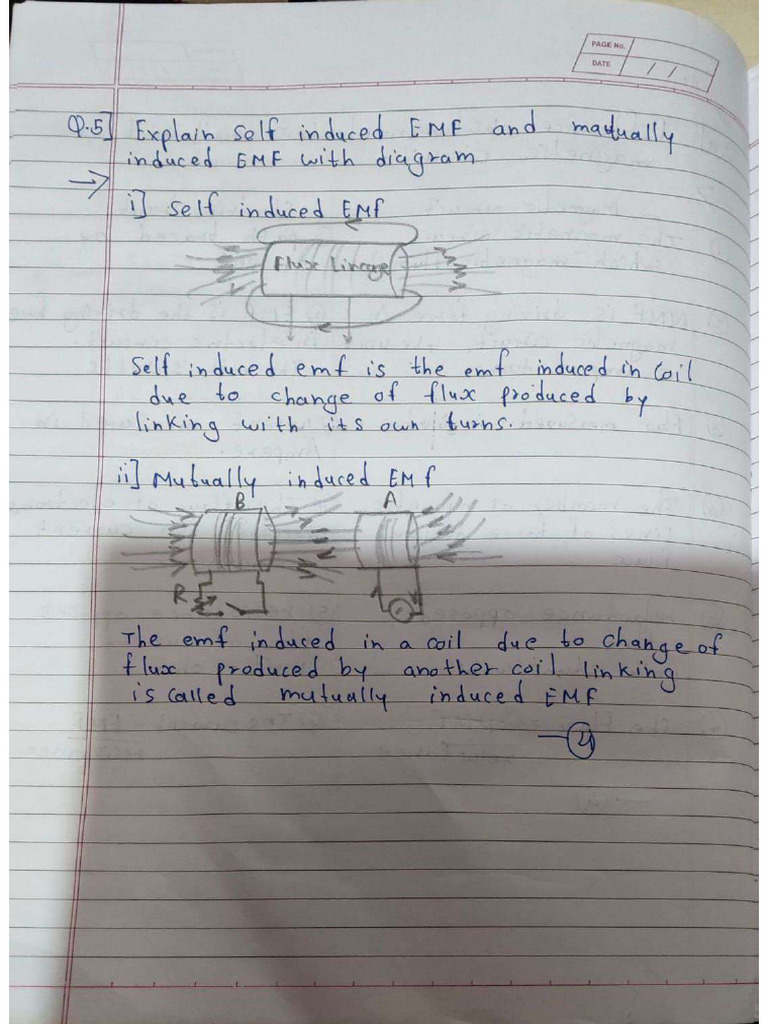 PAGE No.
DATE / /
Q.5] Explain Self induced EMF and matually
induced EMF with diagram
→ i] Self induced EMf
Flux Linkage
Self induced emf is the emf induced in coil
due to change of flux produced by
linking with its own turns.
ii] Mutually induced EMf
B A
R
The emf induced in a coil due to change of
flux produced by another coil linking
is called mutually induced EMF